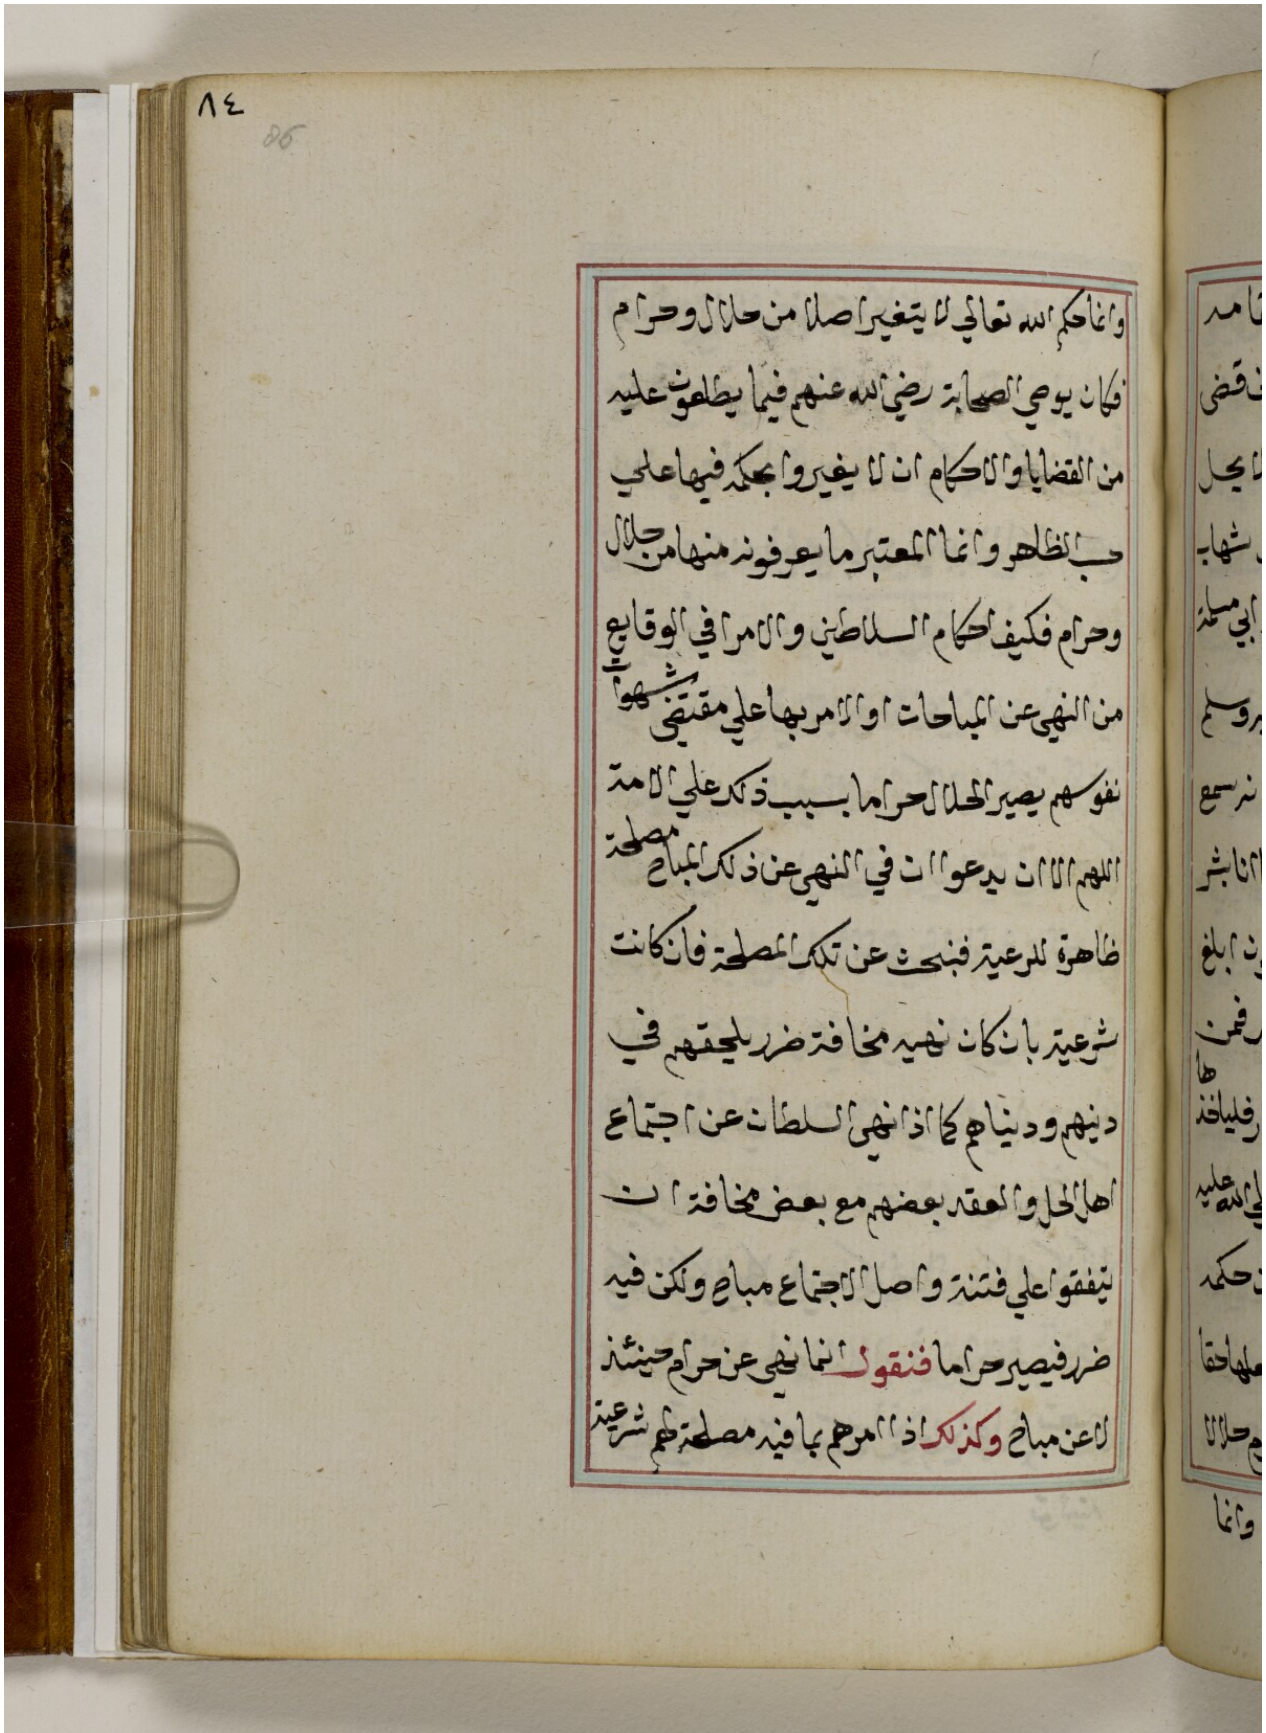 ٨٤
86
وانما حكم الله تعالي لا يتغير اصلا من حلال وحرام
فكان يوصي الصحابة رضي الله عنهم فيما يطلعون عليه
من القضايا والاحكام ان لا يغيروا بحكمه فيها علي
حسب الظاهر وانما المعتبر ما يعرفونه منها من حلال
وحرام فكيف احكام السلاطين والامرا في الوقايع
من النهي عن المباحات او الامر بها علي مقتضي شهوات
نفوسهم يصير الحلال حراما بسبب ذلك علي الامة
اللهم الا ان يدعوا ان في النهي عن ذلك المباح مصلحة
ظاهرة للرعية فنبحث عن تلك المصلحة فان كانت
شرعية بان كان نهيه مخافة ضرر يلحقهم في
دينهم ودنياهم كما اذا نهي السلطان عن اجتماع
اهل الحل والعقد بعضهم مع بعض مخافة ان
يتفقوا علي فتنة واصل الاجتماع مباح ولكن فيه
ضرر فيصير حراما فنقول انما نهي عن حرام حينئذ
لا عن مباح وكذلك اذا امرهم بما فيه مصلحة لهم شرعية
قضي
لا يحل
شهاب
ابي سلمة
وسلم
سمع
انا بشر
ابلغ
فمن
ها
فلياخذ
الله عليه
حكمه
حقا
حلالا
وانما